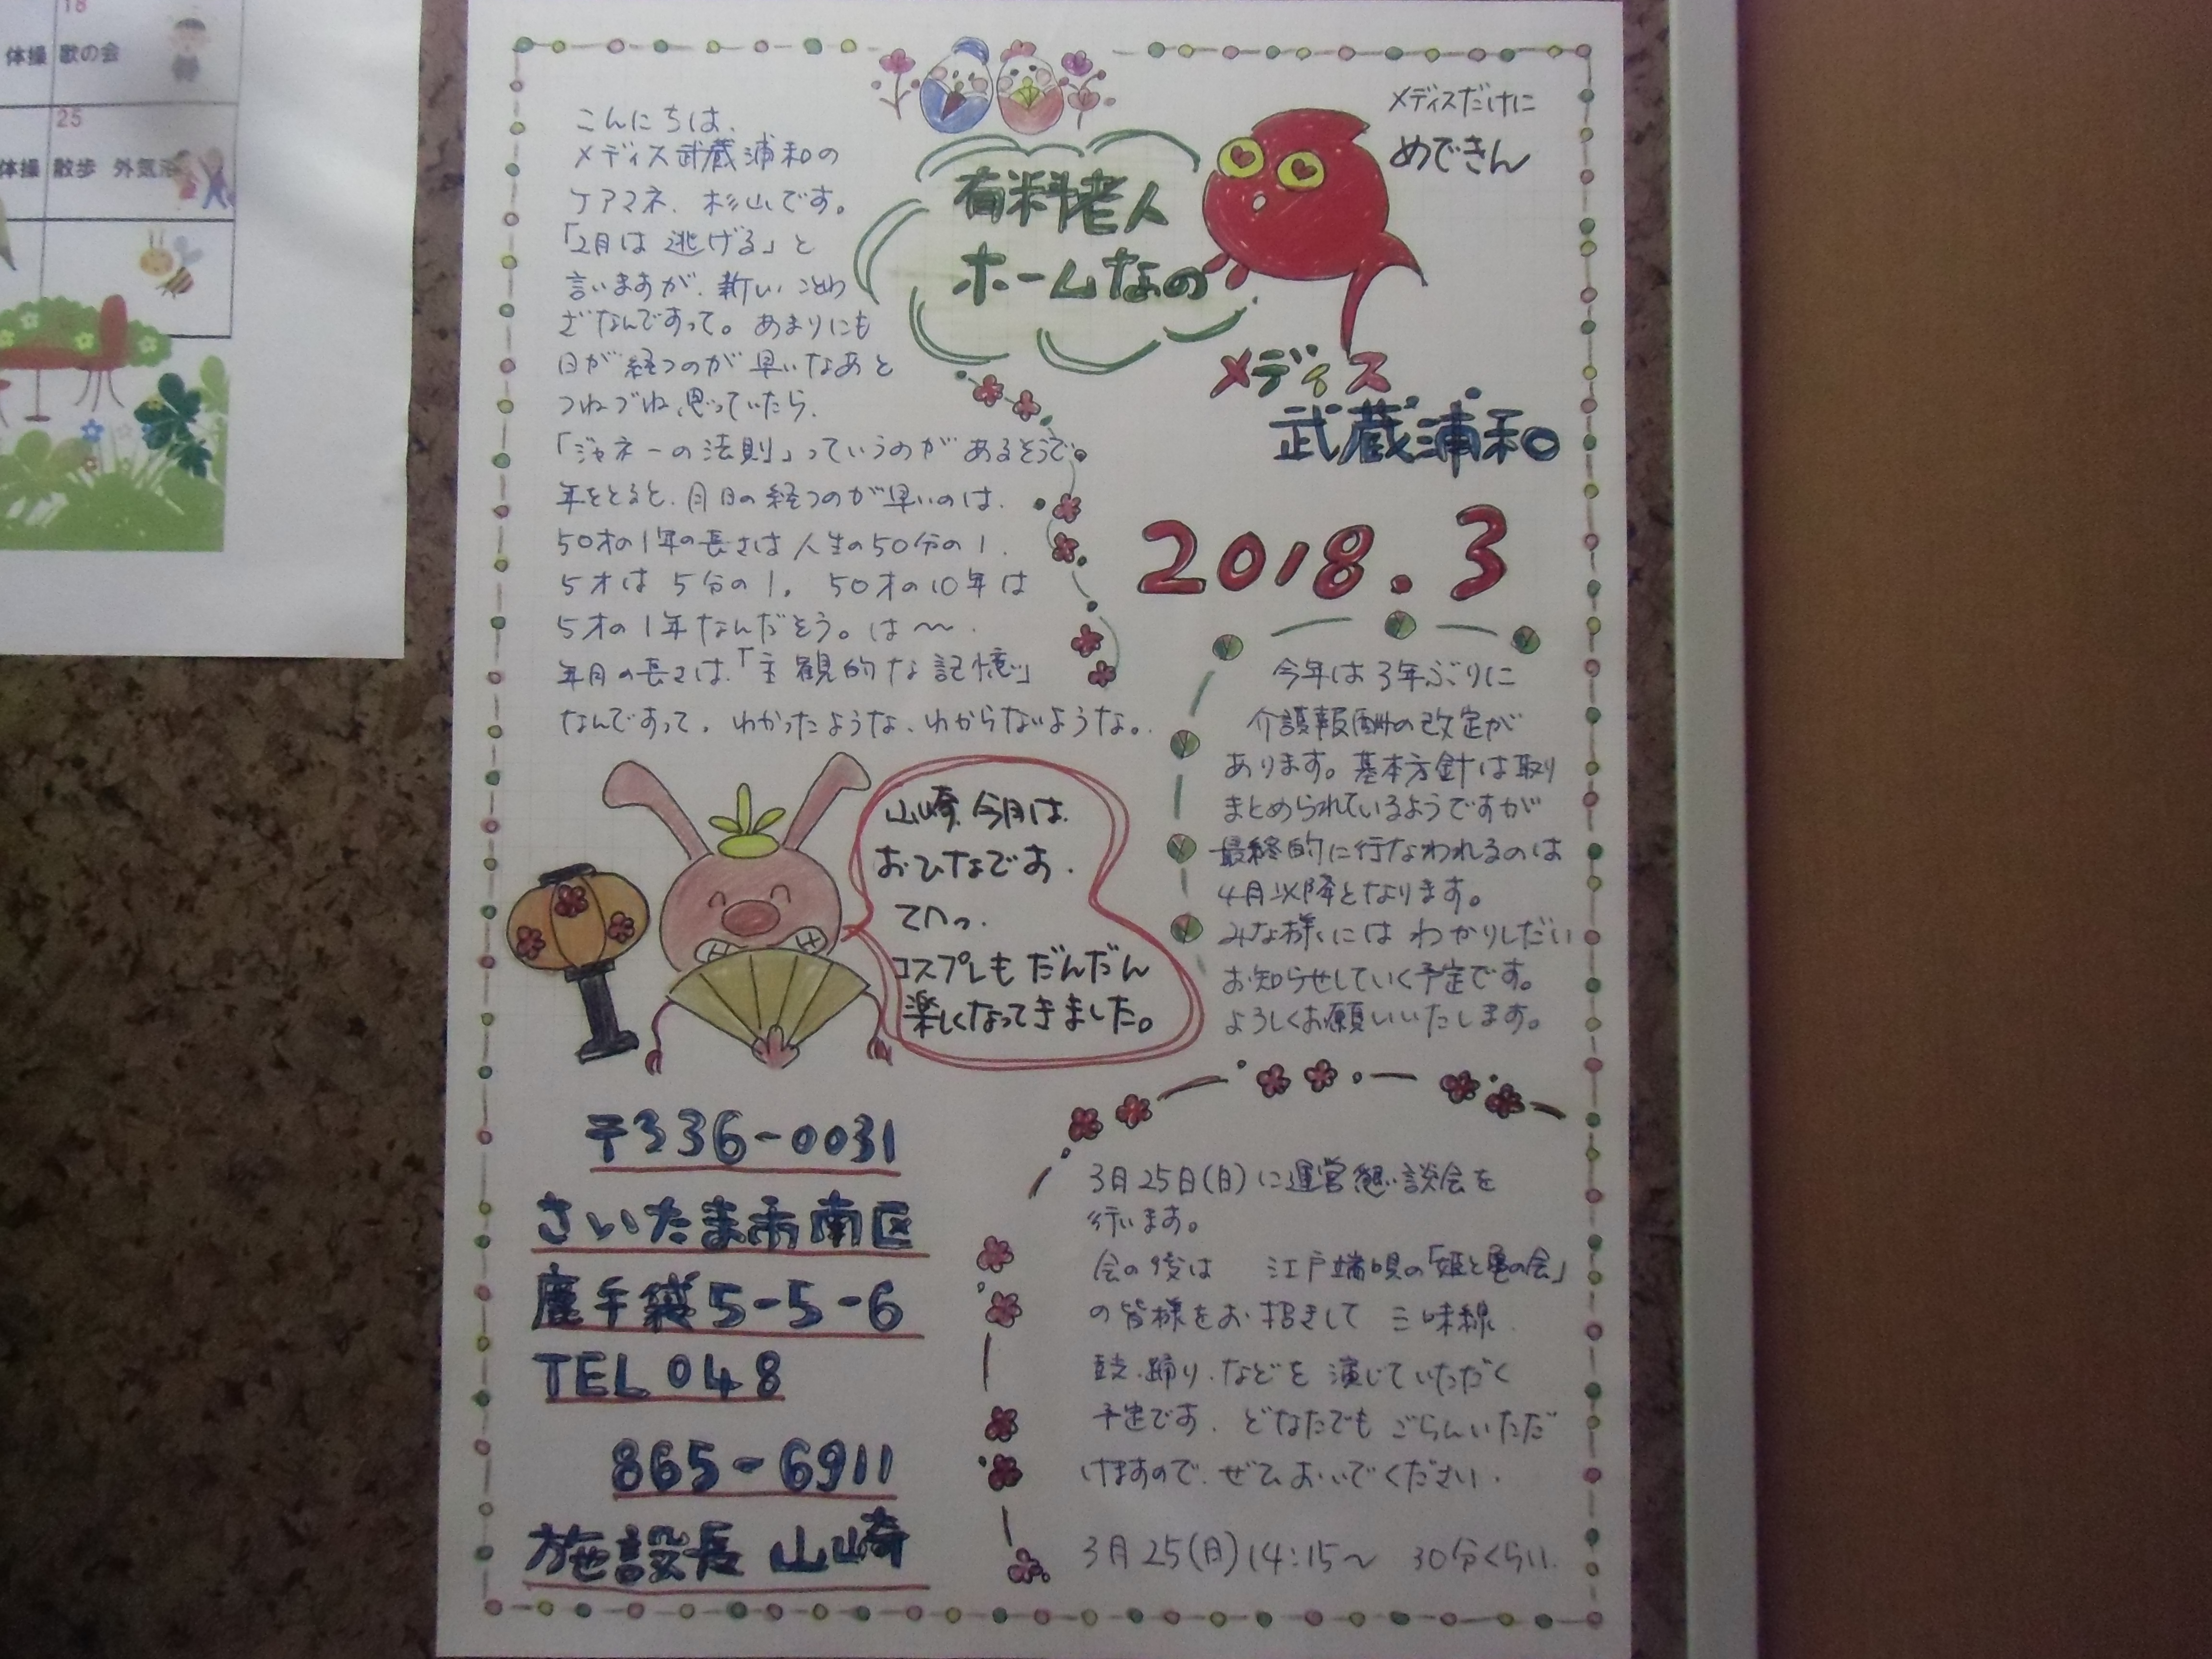 18
体操 歌の会
25
体操 散歩 外気浴
こんにちは、
メディス武蔵浦和の
ケアマネ、杉山です。
「2月は逃げる」と
言いますが、新しいことわ
ざなんですって。あまりにも
日が経つのが早いなあと
つねづね思っていたら、
「ジャネーの法則」っていうのがあるそうで。
年をとると、月日の経つのが早いのは、
50才の1年の長さは人生の50分の1、
5才は5分の1。50才の10年は
5才の1年なんだそう。は〜〜、
年月の長さは、「主観的な記憶」
なんですって。わかったような、わからないような。
有料老人
ホームなの
メディスだけに
めできん
メディス
武蔵浦和
2018.3
今年は3年ぶりに
介護報酬の改定が
あります。基本方針は取り
まとめられているようですが
最終的に行なわれるのは
4月以降となります。
みな様にはわかりしだい
お知らせしていく予定です。
よろしくお願いいたします。
山崎、今月は、
おひなです。
てへっ。
コスプレもだんだん
楽しくなってきました。
〒336-0031
さいたま市南区
鹿手袋5-5-6
TEL 048
865-6911
施設長 山崎
3月25日(日)に運営懇談会を
行います。
会の後は 江戸端唄の「姫と亀の会」
の皆様をお招きして 三味線、
鼓、踊り、などを演じていただく
予定です。どなたでもごらんいただ
けますので、ぜひおいでください。
3月25(日)14:15〜 30分くらい